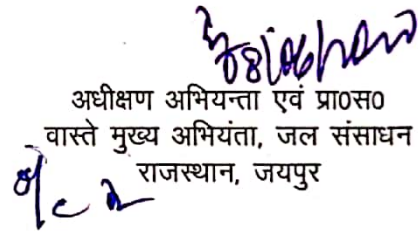 अधीक्षण अभियन्ता एवं प्रा0स0
वास्ते मुख्य अभियंता, जल संसाधन
राजस्थान, जयपुर